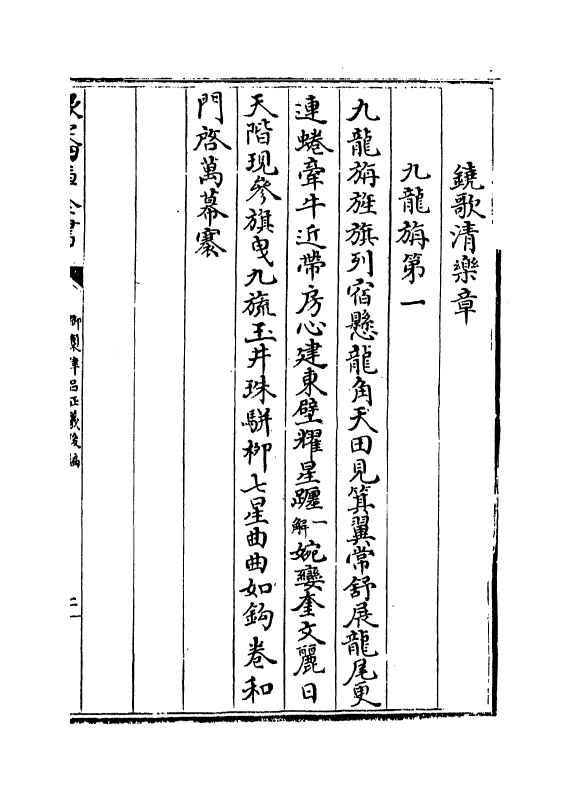 鐃歌清樂章
九龍旃第一
九龍旃旌旗列宿懸龍角天田見箕翼常舒展龍尾更
連蜷牽牛近帶房心建東壁耀星躔一解婉孌奎文麗日
天階現參旗曳九旒玉井珠駢柳七星曲曲如鈎卷和
門啓萬幕褰
欽定四庫全書
御製律呂正義後編
二